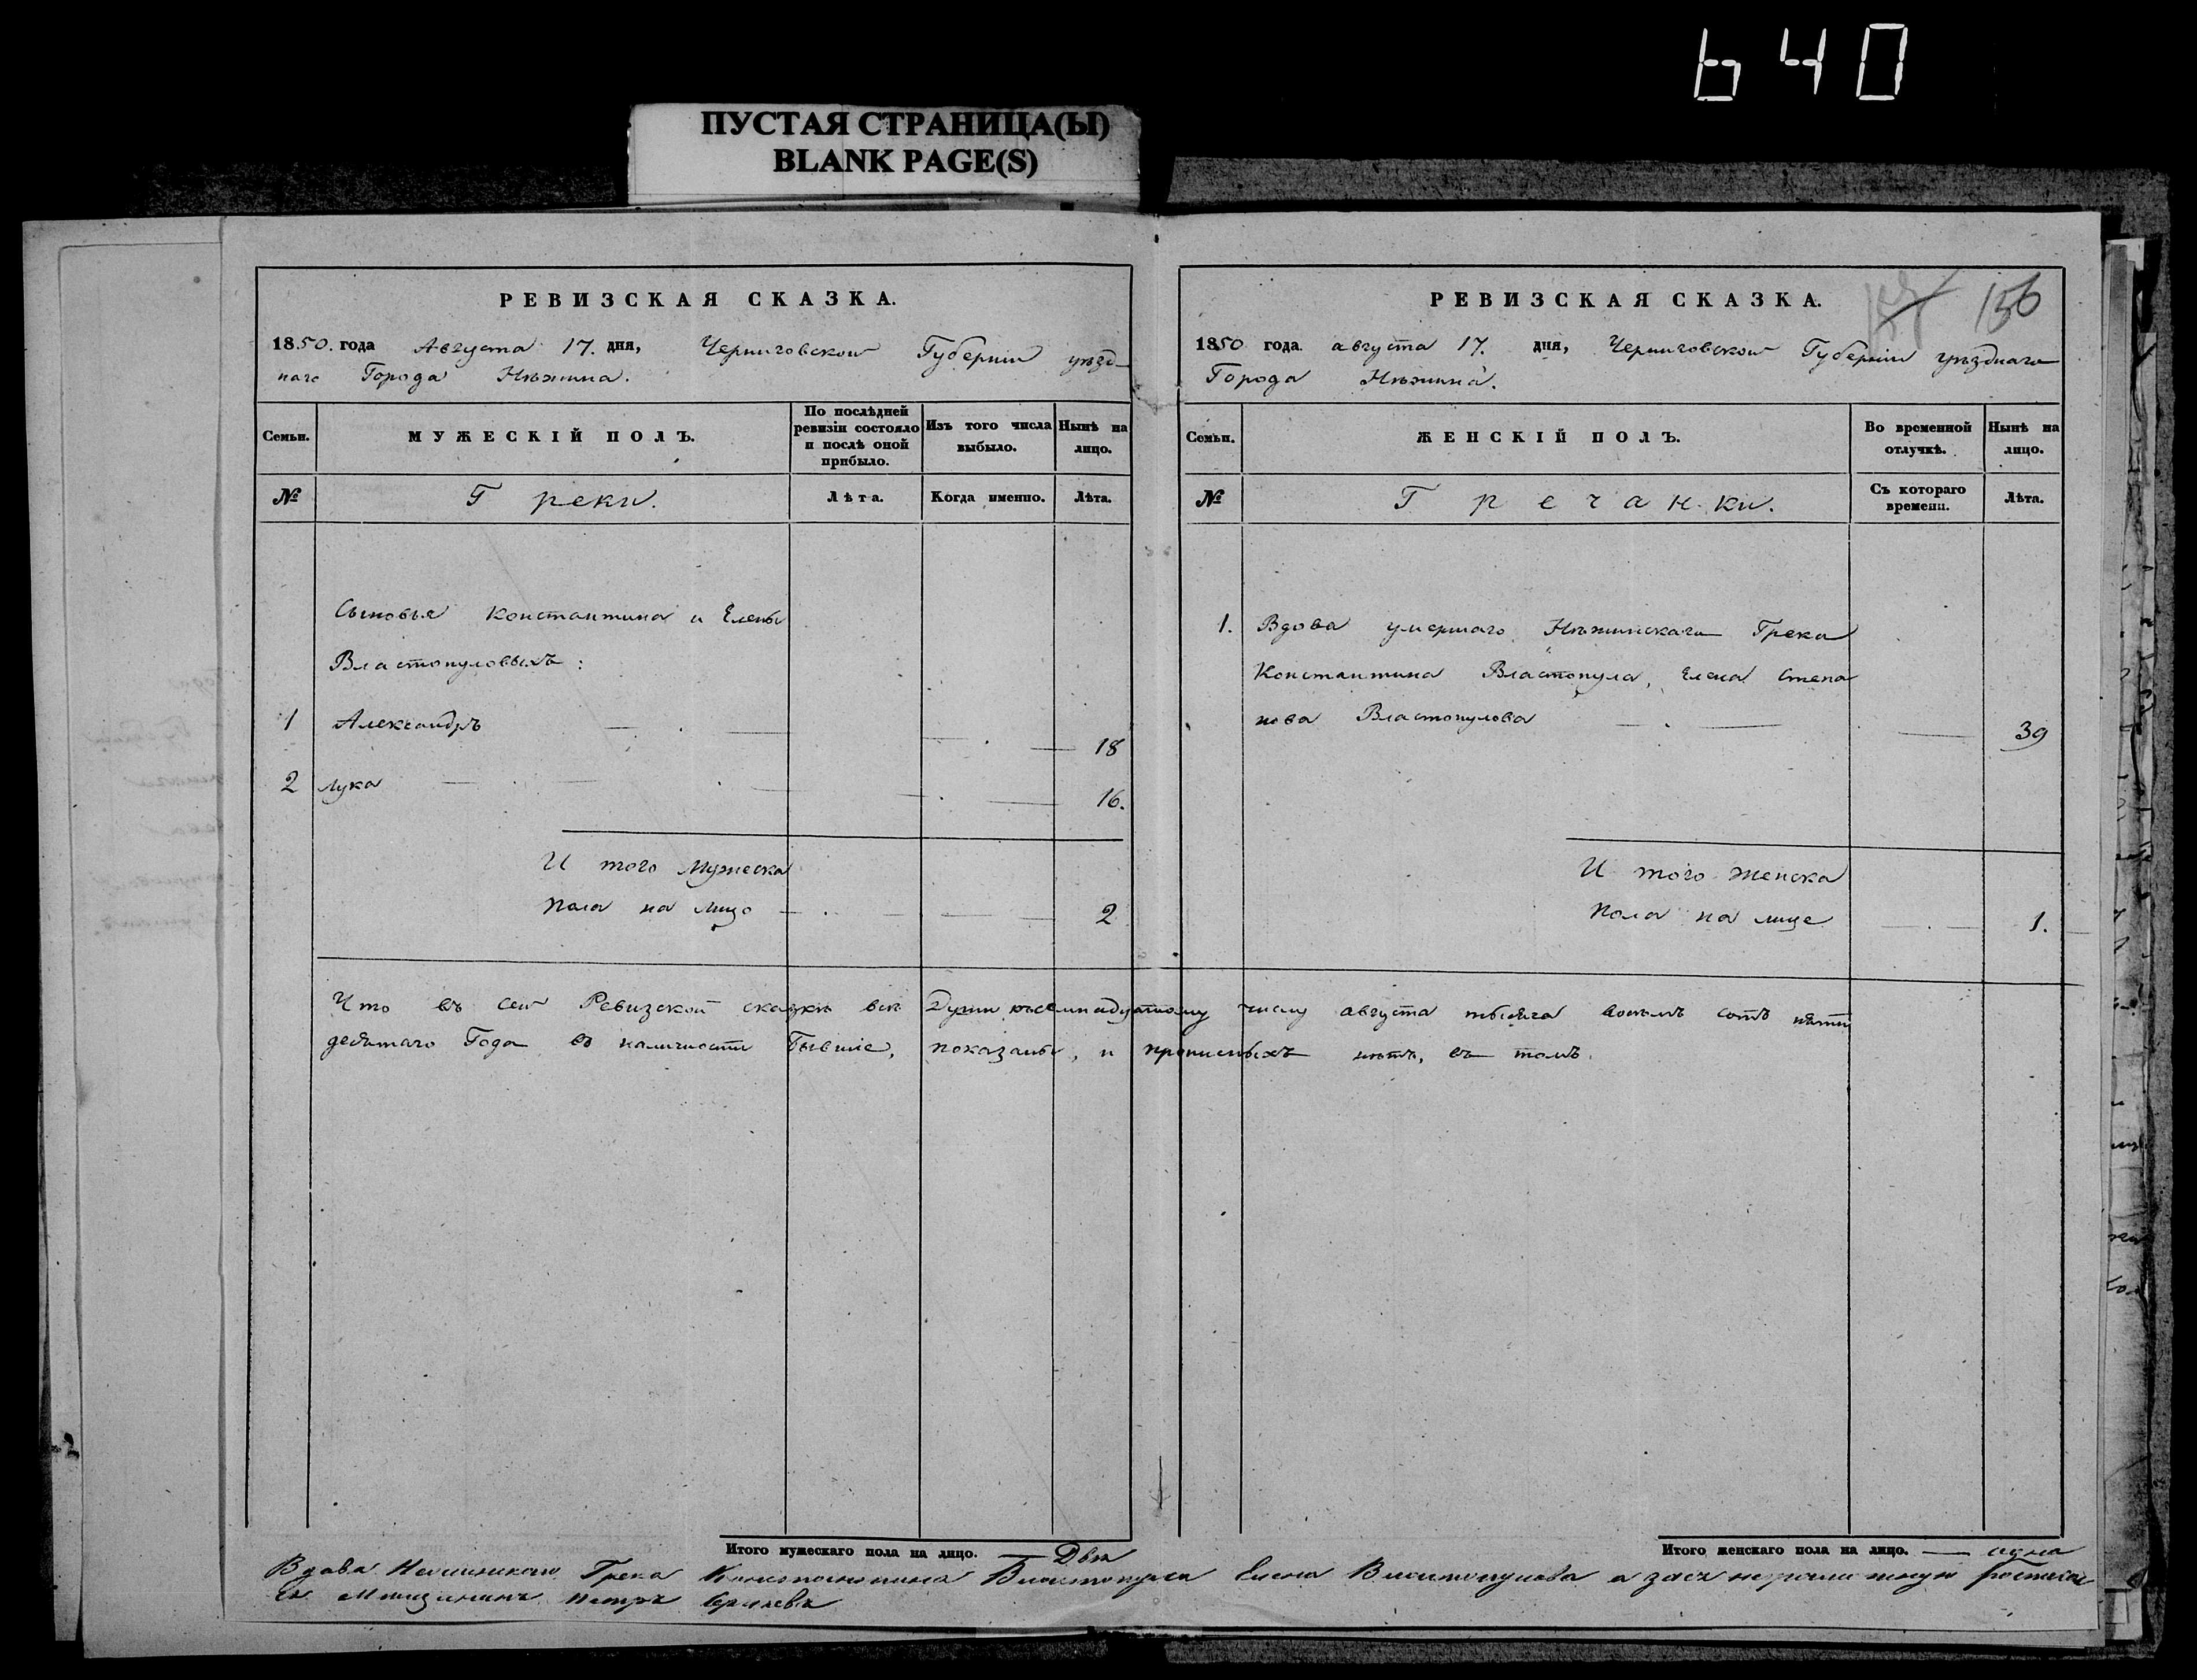 640
ПУСТАЯ СТРАНИЦА(Ы)
BLANK PAGE(S)
РЕВИЗСКАЯ СКАЗКА.
1850. года Августа 17. дня, Черниговской Губерніи уѣзд-
наго Города Нѣжина.
Семьи.
МУЖЕСКІЙ ПОЛЪ.
По послѣдней ревизіи состояло и послѣ оной прибыло.
Изъ того числа выбыло.
Нынѣ на лицо.
№
Греки.
Лѣта.
Когда именно.
Лѣта.
Сыновья Константина и Елены
Властопуловыхъ:
1 Александръ 18
2 Лука 16.
И того Мужеска
пола на лицо 2
РЕВИЗСКАЯ СКАЗКА.
156
1850 года августа 17. дня, Черниговской Губерніи уѣзднаго
Города Нѣжина.
Семьи.
ЖЕНСКІЙ ПОЛЪ.
Во временной отлучкѣ.
Нынѣ на лицо.
№
Гречанки.
Съ котораго времени.
Лѣта.
1. Вдова умершаго Нѣжинскаго Грека
Константина Властопула, Елена Степа
нова Властопулова 39
И того женска
пола на лице 1.
Что въ сей Ревизской сказкѣ всѣ Души къ семнадцатому числу августа тысяча восемъ сотъ пяти
десятаго Года въ наличности бывшіе, показаны, и прописныхъ нѣтъ, въ томъ
Итого мужескаго пола на лицо. — Два
Итого женскаго пола на лицо. — одна
Вдова Грека Константина Властопула Елена Властопулова а за ея неграмотную росписался
Мещанинъ Петръ